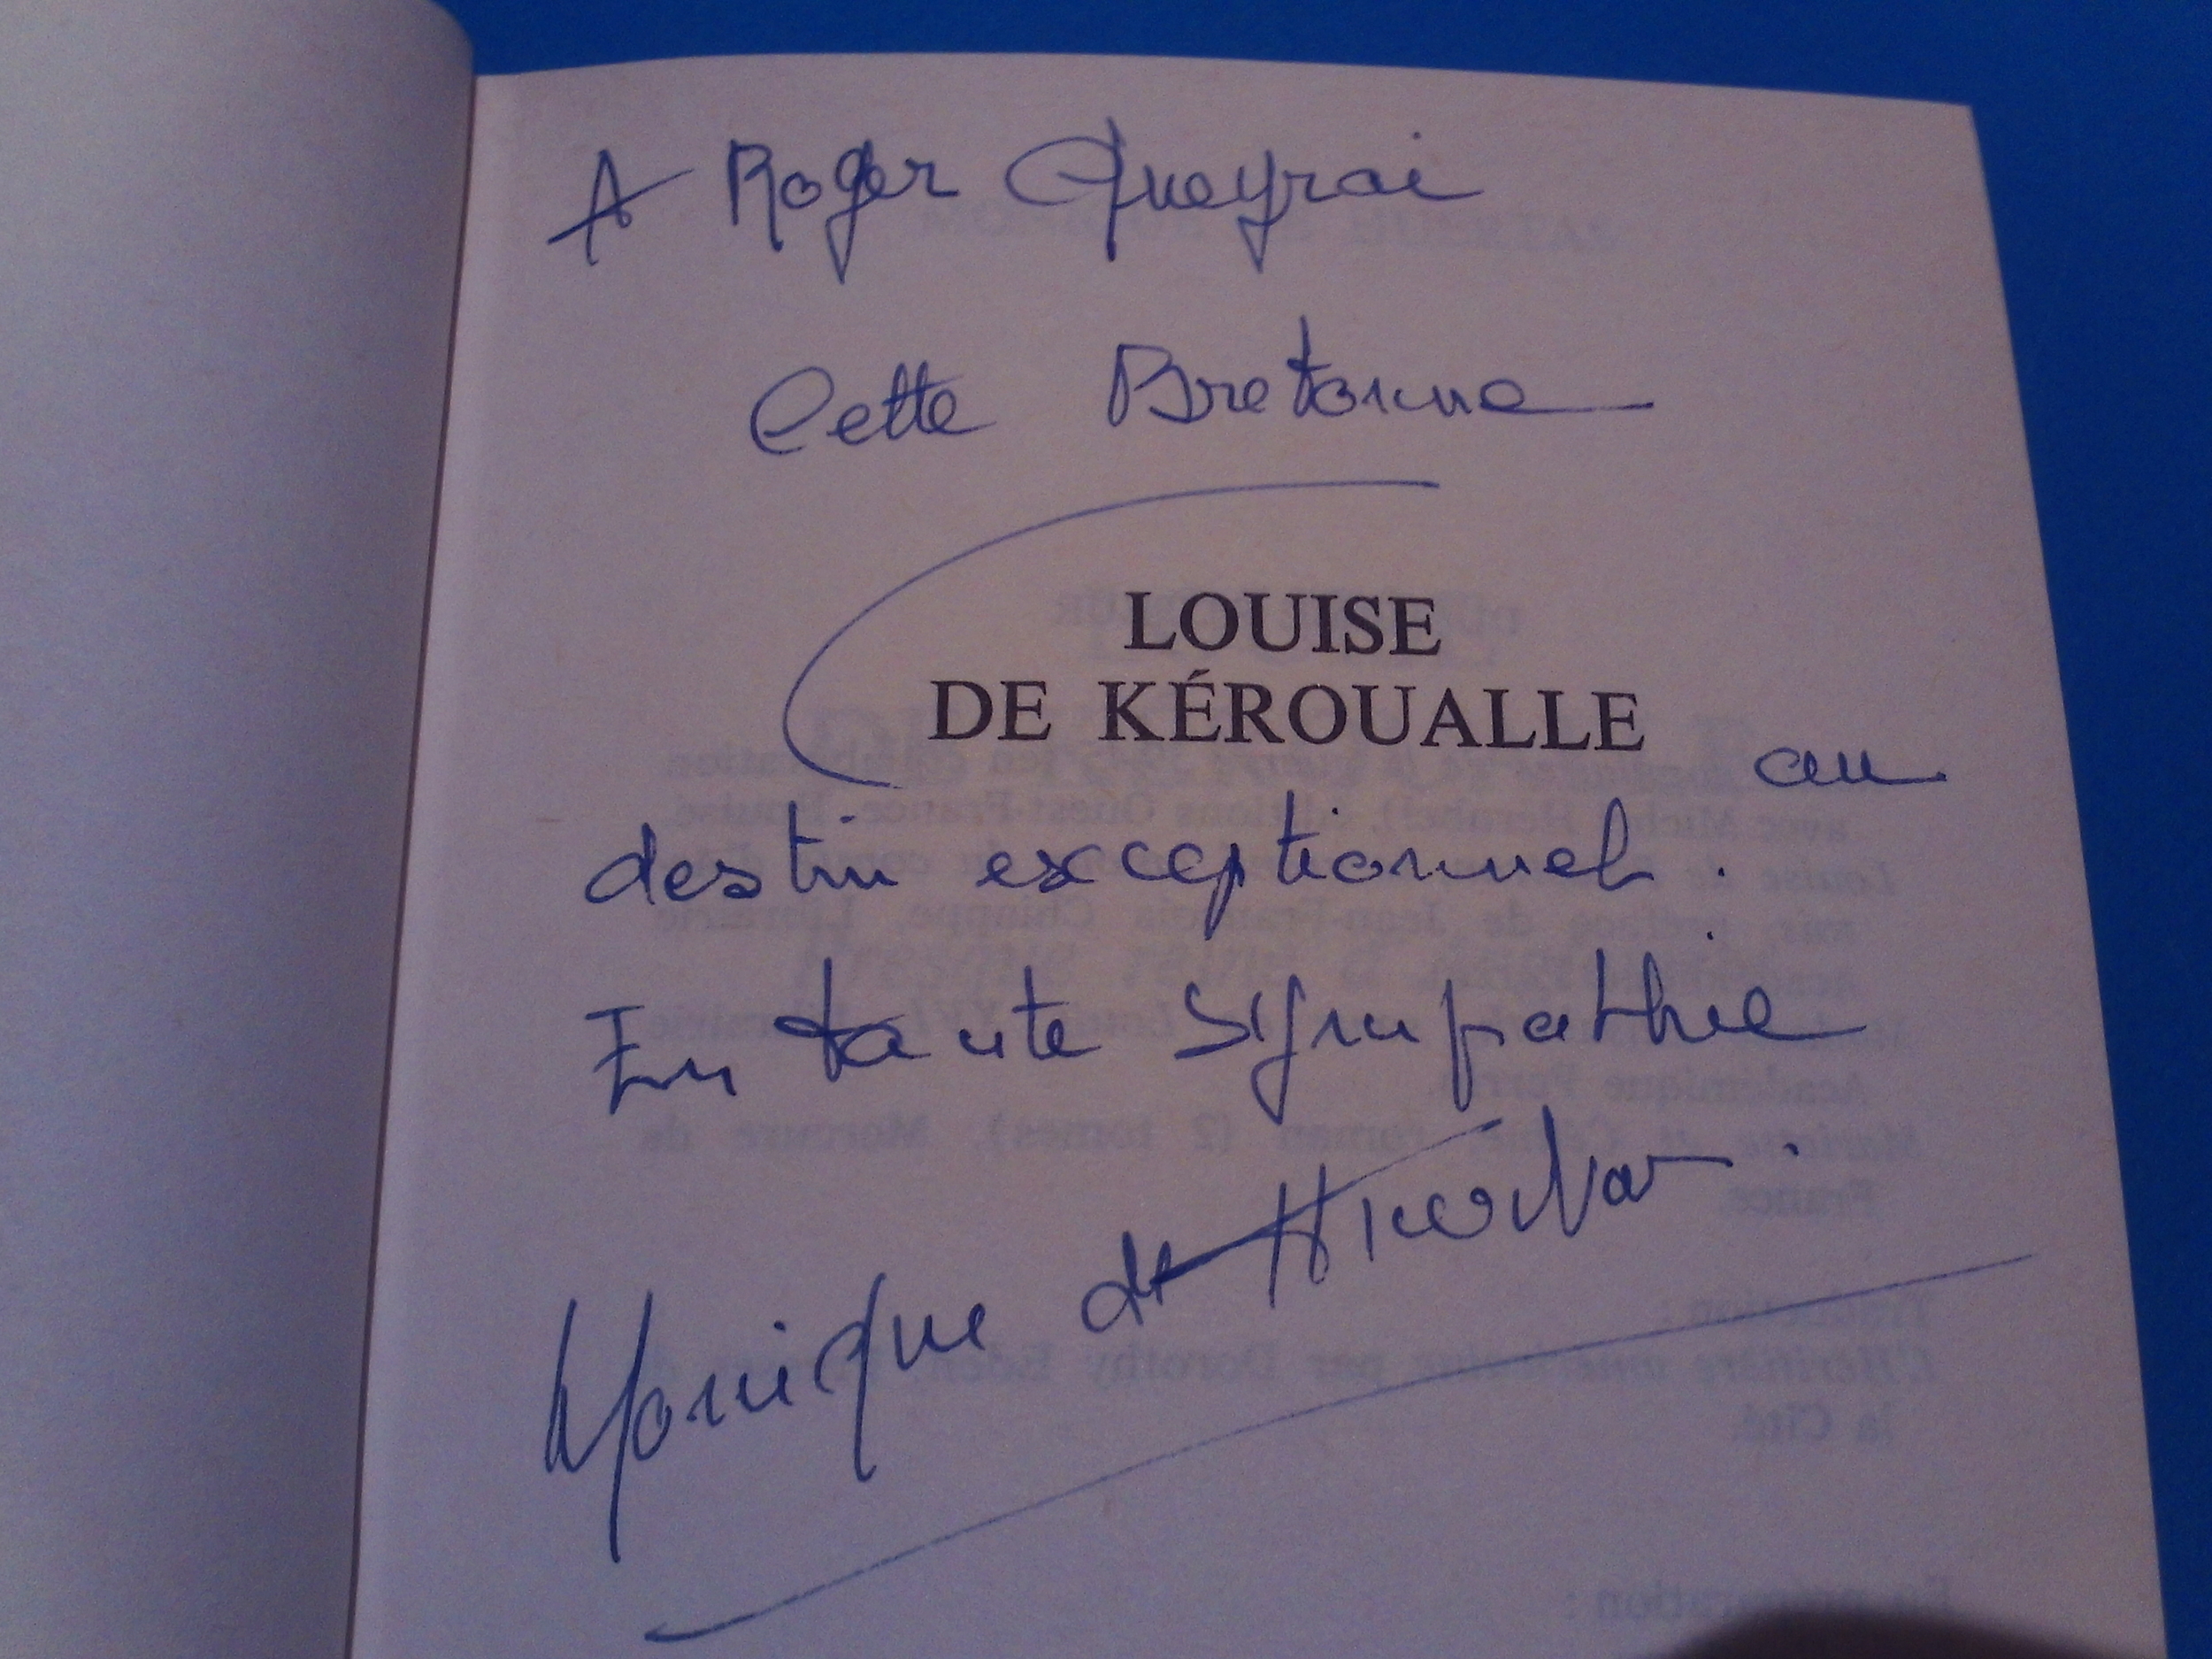 A Roger Queyroi
Cette Bretonne
LOUISE
DE KÉROUALLE
au
destin exceptionnel.
En toute sympathie
Monique de